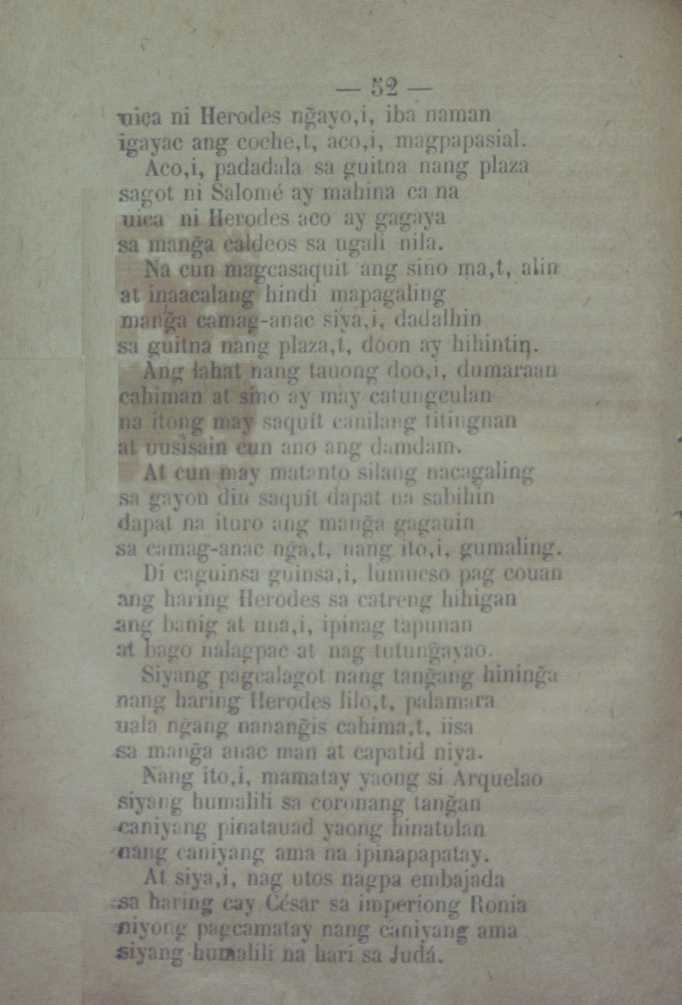 — 52 —
uica ni Herodes ng̃ayo,i, iba naman
igayac ang coche,t, aco,i, magpapasial.
Aco,i, padadala sa guitna nang plaza
sagot ni Salomé ay mahina ca na
uica ni Herodes aco ay gagaya
sa mang̃a caldeos sa ugali nila.
Na cun magcasaquit ang sino ma,t, alin
at inaacalang hindi mapagaling
mang̃a camag-anac siya,i, dadalhin
sa guitna nang plaza,t, doon ay hihintin.
Ang lahat nang tauong doo,i, dumaraan
cahiman at sino ay may catungculan
na itong may saquit canilang titingnan
at uusisain cun ano ang damdam.
At cun may matanto silang nacagaling
sa gayon din saquit dapat na sabihin
dapat na ituro ang mang̃a gagauin
sa camag-anac ng̃a,t, nang ito,i, gumaling.
Di caguinsa guinsa,i, lumucso pag couan
ang haring Herodes sa catreng hihigan
ang banig at una,i, ipinag tapunan
at bago nalagpac at nag tutung̃ayao.
Siyang pagcalagot nang tang̃ang hining̃a
nang haring Herodes lilo,t, palamara
uala ng̃ang nanang̃is cahima,t, iisa
sa mang̃a anac man at capatid niya.
Nang ito,i, mamatay yaong si Arquelao
siyang humalili sa coronang tang̃an
caniyang pinatauad yaong hinatulan
nang caniyang ama na ipinapapatay.
At siya,i, nag utos nagpa embajada
sa haring cay César sa imperiong Ronia
niyong pagcamatay nang caniyang ama
siyang humalili na hari sa Judá.